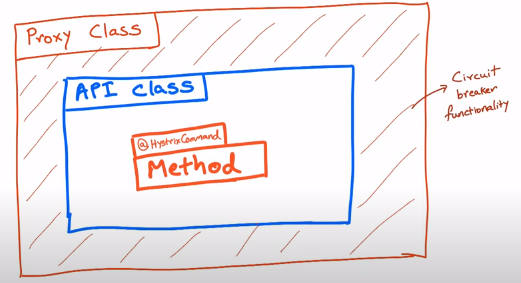 Proxy Class
API Class
@HystrixCommand
Method
Circuit
breaker
functionality